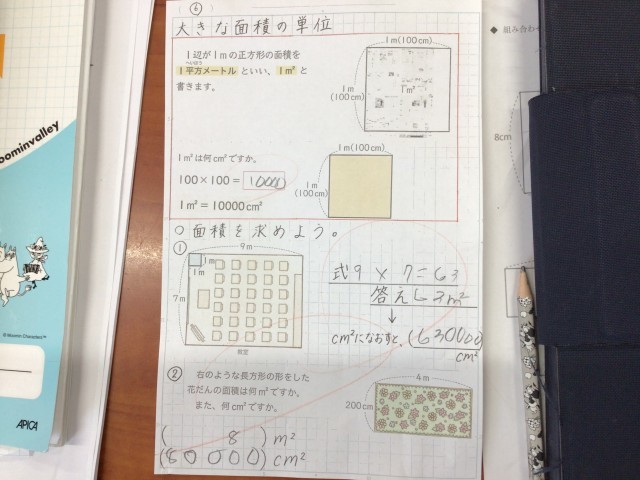 (6)
大きな面積の単位
1辺が1mの正方形の面積を
へいほう
1平方メートルといい、1m²と
書きます。
1m(100cm)
1m
(100cm)
1m²
1m²は何cm²ですか。
100×100=10000
1m²=10000cm²
1m(100cm)
1m
(100cm)
○面積を求めよう。
①
9m
1m
1m
7m
教室
式9×7=63
答え63m²
↓
cm²になおすと、(630000)
cm²
② 右のような長方形の形をした
花だんの面積は何m²ですか。
また、何cm²ですか。
4m
200cm
( 8 )m²
(80000)cm²
oominvalley
© Moomin Characters™
APICA
◆ 組み合わ
8cm